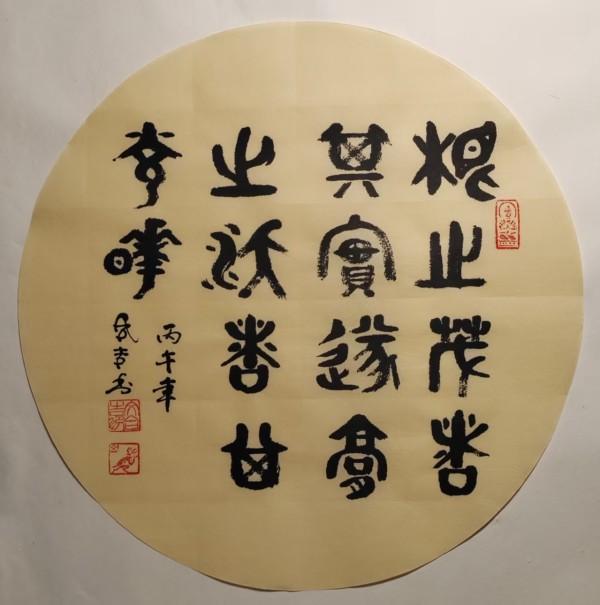 根之茂者
其實遂膏
之沃者其
光曄
丙午年